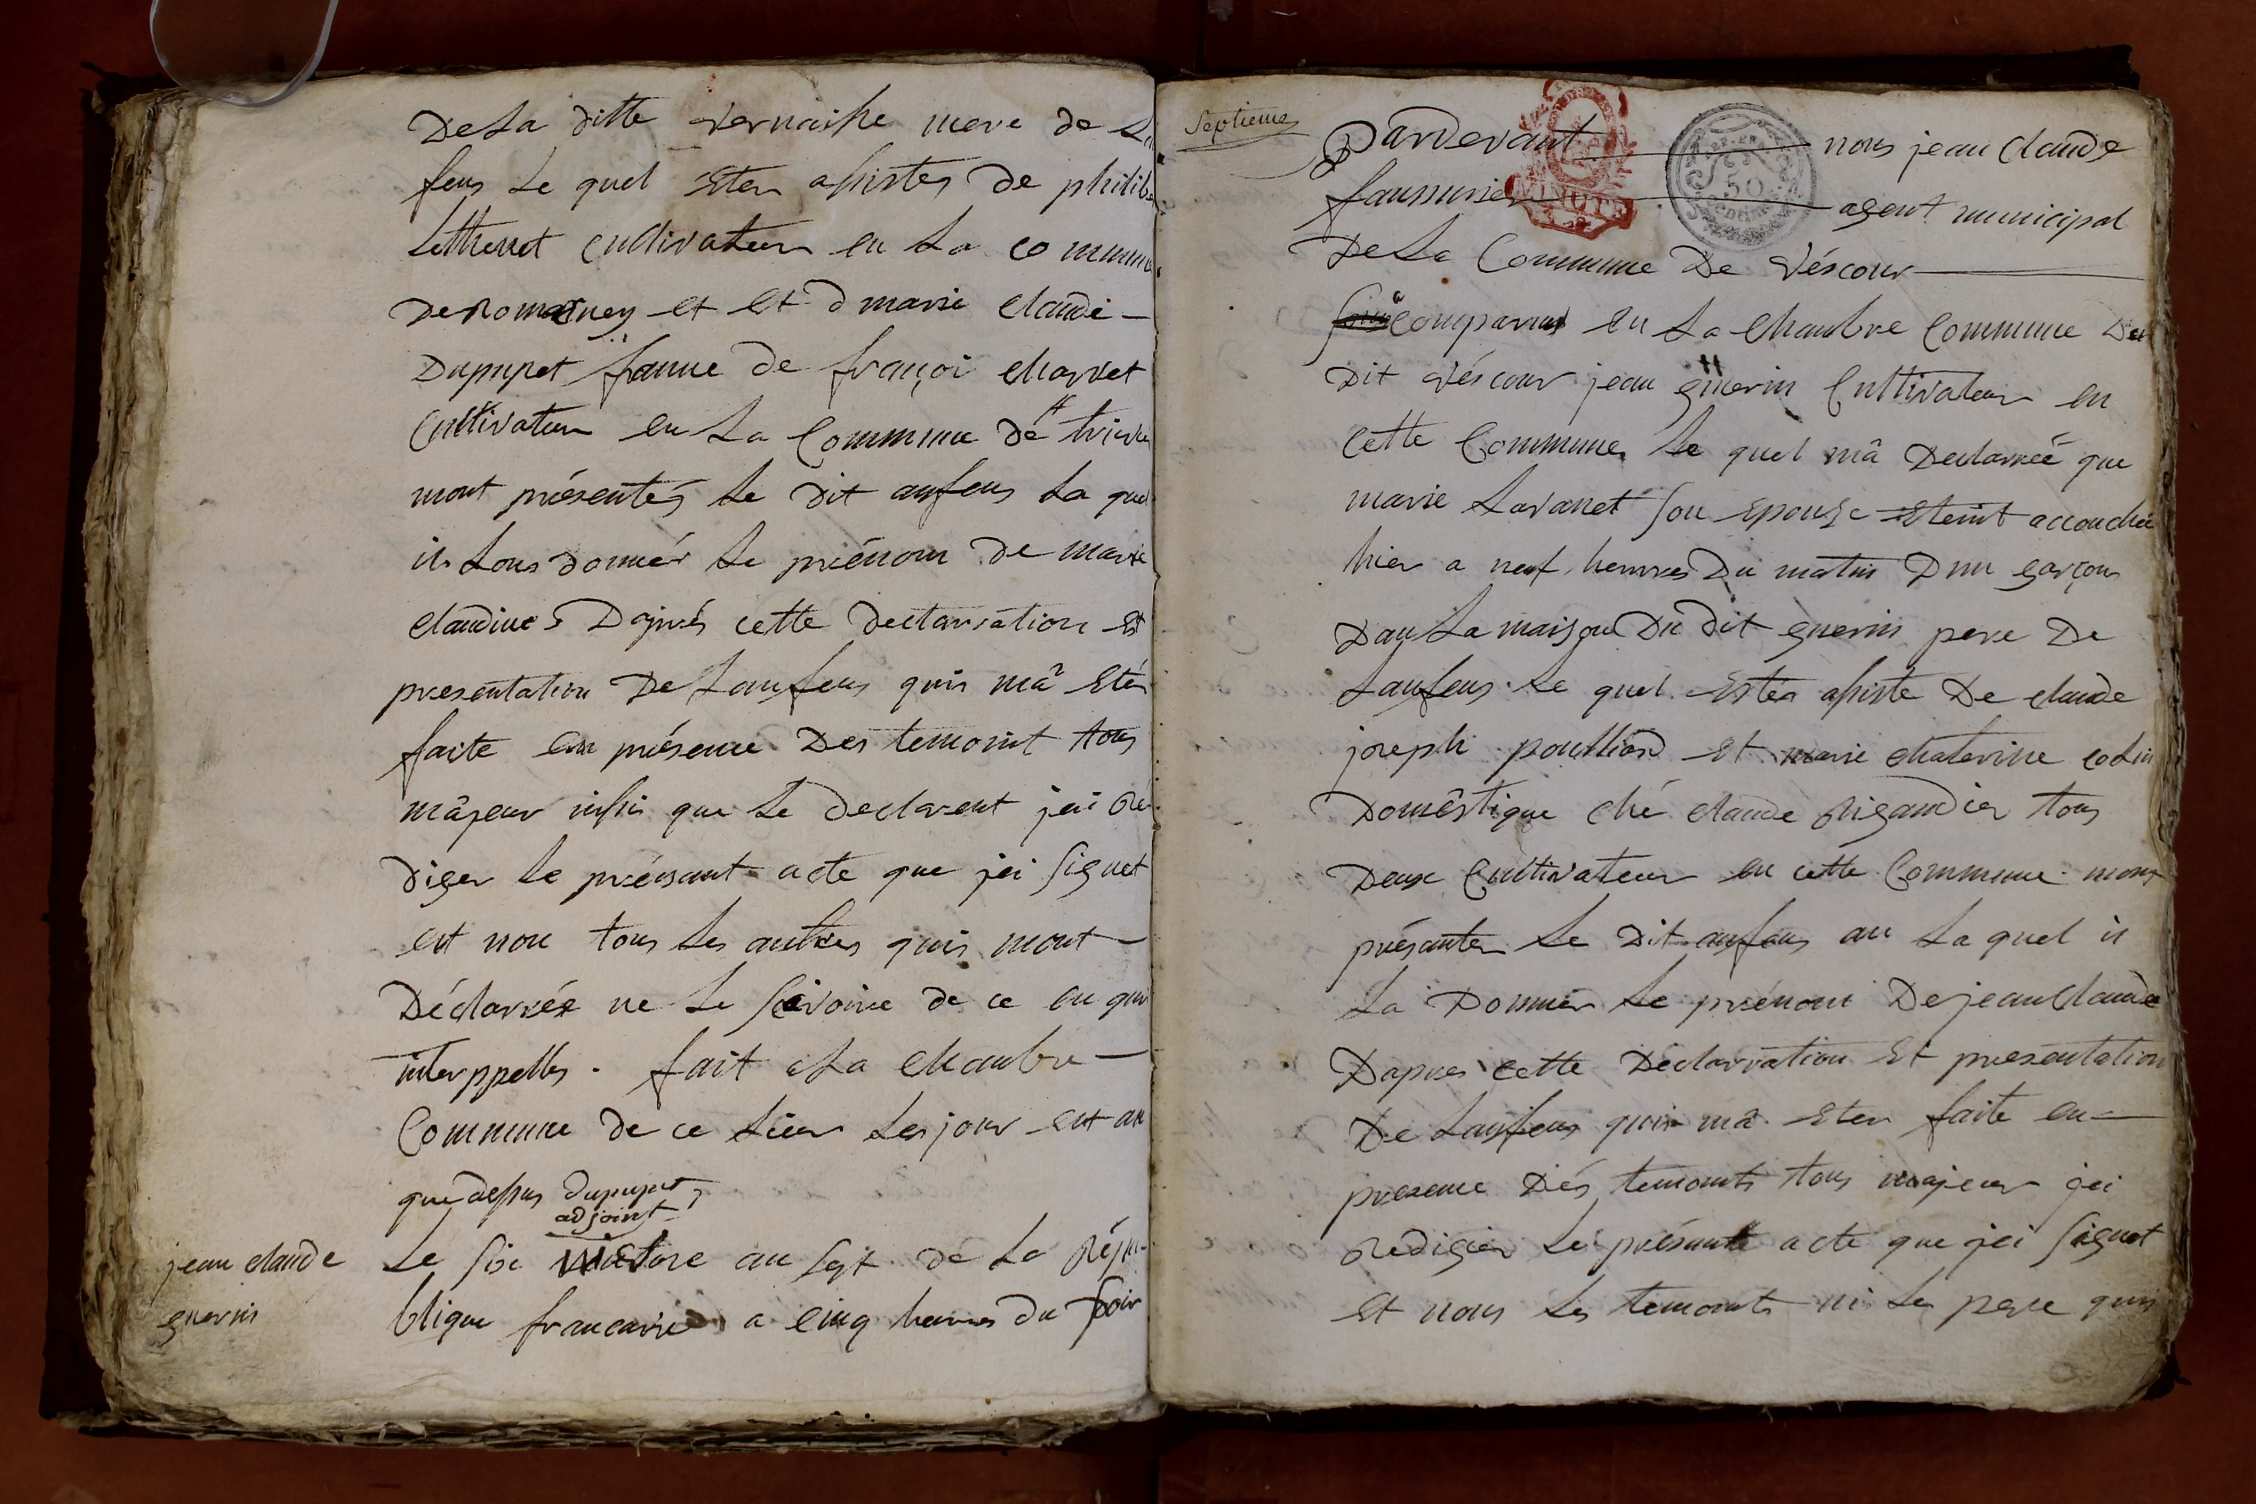 De La ditte vernaisse mere de La
fens Le quel Eter assistes De philibe
Lethenet Cultivateur en La commune
De Romaney et Et D marie claudi
Dupupet fanne de françoi charvet
Cultivateur en La Commune De trivie
mont présentés Le Dit anfens La quel
ils Lons donner Le prénom De marie
claudine Dajirés cette Declaration Et
presentation De Lanfens quis mâ Eter
faite en présence Des temoint tous
mâjeur insin que Le declarent jei Re
Diger Le présant acte que jei Signet
et non tous Les autres quis mont
Déclarrée ne Le scavoire de ce en qui
interppelles. fait a La chambre
Commune de ce Lieu Les jour et an
que dessus Dupupet
adjoint
jean claude
guerin
Le six au sept de La Répu-
blique francaisse a cinq heures Du soir
Septieme
Pardevant nous jean Claude
agent municipal
MINUTE
50
De La Commune De Véscour
comparus en La Chambre Commune Du
Dit Véscour jean guerin Cultivateur en
cette Commune Le quel mâ Declarreé que
marie Lavanet son Epouse Eteint accouchée
hier a neuf heures Du matin D un garçons
Dan La maison Du Dit guerin pere De
Lanfens Le quel Eter assiste De claude
joseph pouthiard Et marie chaterine colin
Domêstique ché claude Rigaudier tous
Deux Cultivateur en cette Commune mont
présanter Le Dit anfens au La quel il
La Donner Le prénom De jean Claude
Dapres cette Declarration Et presentation
De Lanfens quis mâ Eter faite en
presence Dés temoints tous majeur jei
Redigier Le présante acte que jei Signet
Et nons Les temoints ni Le pere quis